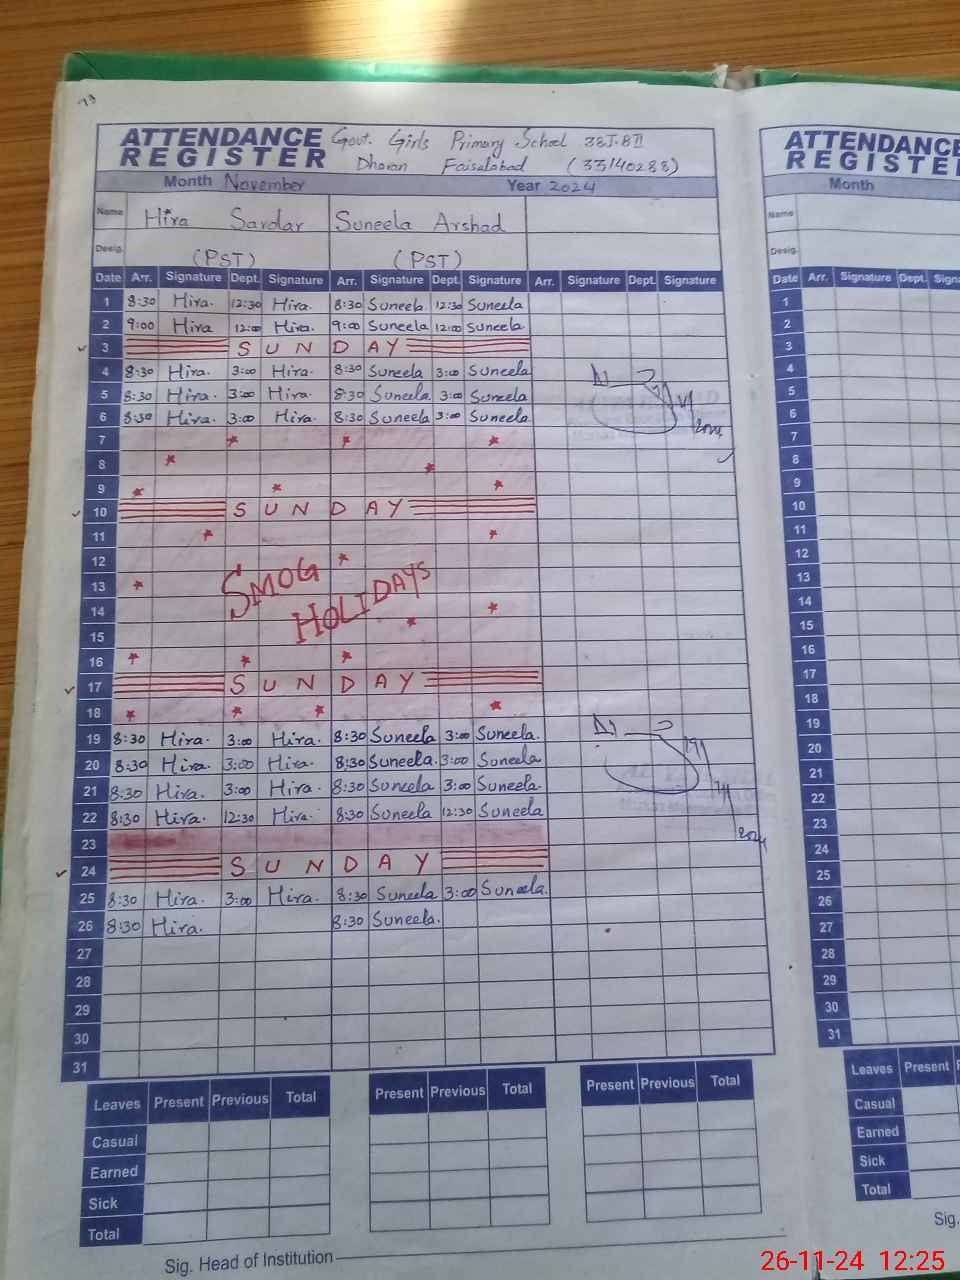 ATTENDANCE REGISTER Govt. Girls Primary School
Dharan Faisalabad (33140288)
Month November Year 2024
Name Hira Sardar Suneela Arshad
Desig. (PST) (PST)
Date Arr. Signature Dept. Signature Arr. Signature Dept. Signature Arr. Signature Dept. Signature
1 8:30 Hira. 12:30 Hira. 8:30 Suneela 12:30 Suneela
2 9:00 Hira 12:00 Hira. 9:00 Suneela 12:00 Suneela
3 SUNDAY
4 8:30 Hira. 3:00 Hira. 8:30 Suneela 3:00 Suneela
5 8:30 Hira. 3:00 Hira. 8:30 Suneela. 3:00 Suneela
6 8:30 Hira. 3:00 Hira. 8:30 Suneela 3:00 Suneela
7
8
9
10 SUNDAY
11
12
13 SMOG
14 HOLIDAYS
15
16
17 SUNDAY
18
19 8:30 Hira. 3:00 Hira. 8:30 Suneela 3:00 Suneela.
20 8:30 Hira. 3:00 Hira. 8:30 Suneela. 3:00 Suneela
21 8:30 Hira. 3:00 Hira. 8:30 Suneela 3:00 Suneela.
22 8:30 Hira. 12:30 Hira. 8:30 Suneela 12:30 Suneela
23
24 SUNDAY
25 8:30 Hira. 3:00 Hira. 8:30 Suneela 3:00 Suneela.
26 8:30 Hira. 8:30 Suneela.
27
28
29
30
31
Leaves Present Previous Total Present Previous Total Present Previous Total
Casual
Earned
Sick
Total
Sig. Head of Institution
ATTENDANCE
REGISTER
Month
Name
Desig.
Date Arr. Signature Dept.
1
2
3
4
5
6
7
8
9
10
11
12
13
14
15
16
17
18
19
20
21
22
23
24
25
26
27
28
29
30
31
Leaves Present
Casual
Earned
Sick
Total
Sig.
26-11-24 12:25